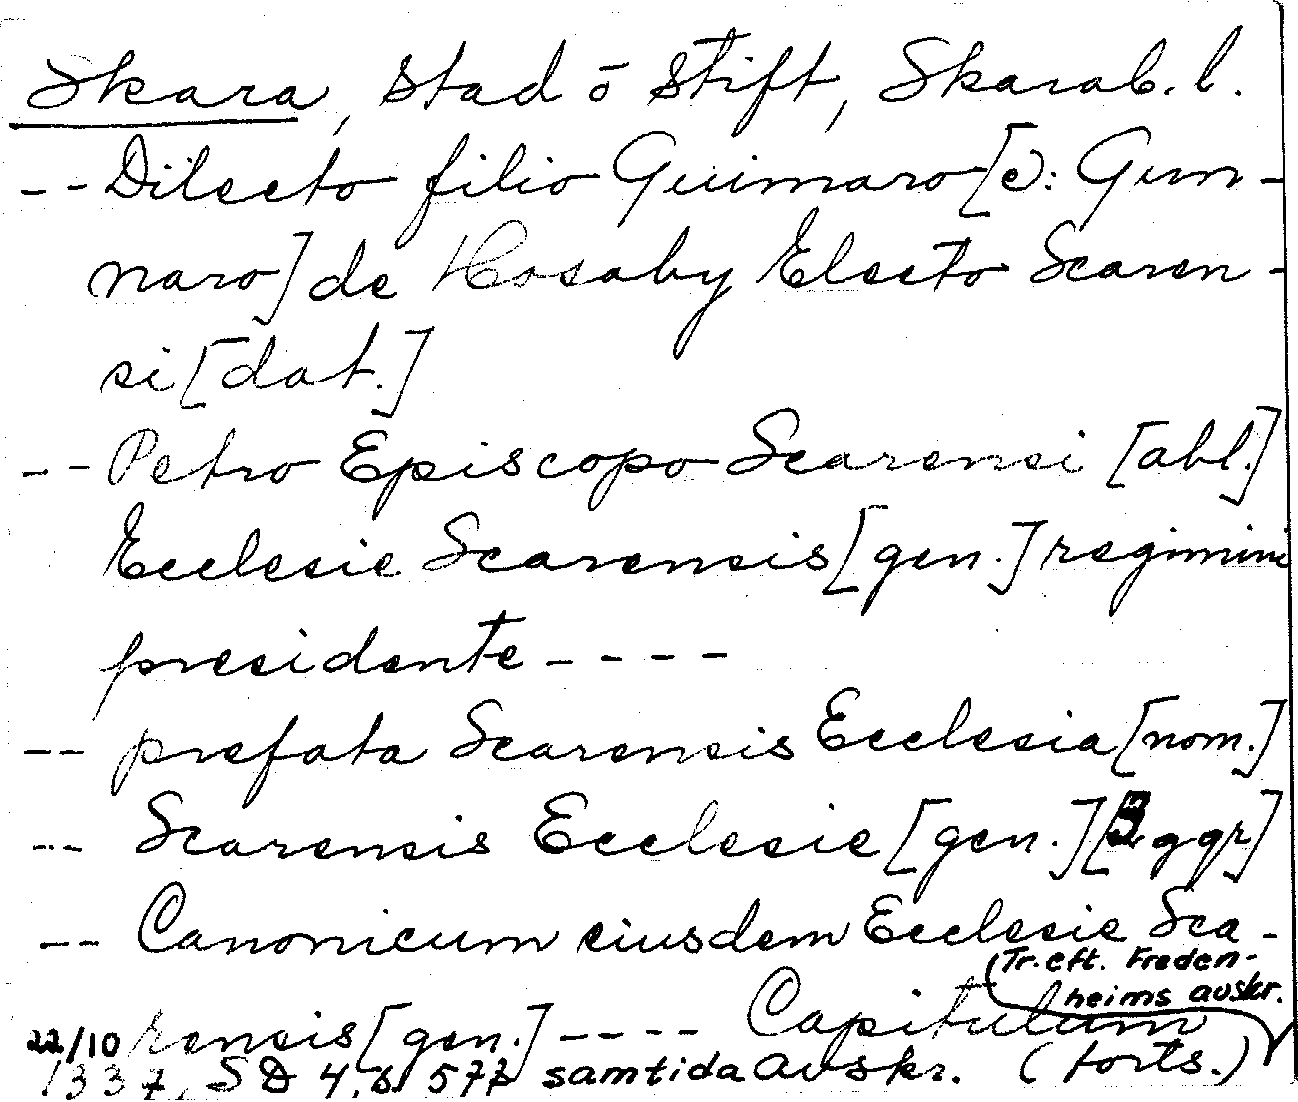 Skara, stad o stift, Skarab. l.
-- Dilecto filio Guimaro [ɔ: Gun-
naro] de Hosaby Electo Scaren-
si [dat.]
-- Petro Episcopo Scarensi [abl.]
Ecclesie Scarensis [gen.] regimini
presidente ----
-- prefata Scarensis Ecclesia [nom.]
-- Scarensis Ecclesie [gen.] [3 ggr]
-- Canonicum eiusdem Ecclesie Sca-
(Tr. eft. Freden-
heims avskr.
rensis [gen.] ---- Capitulum
22/10 1337, SD 4, s. 577 samtida avskr. (forts.)